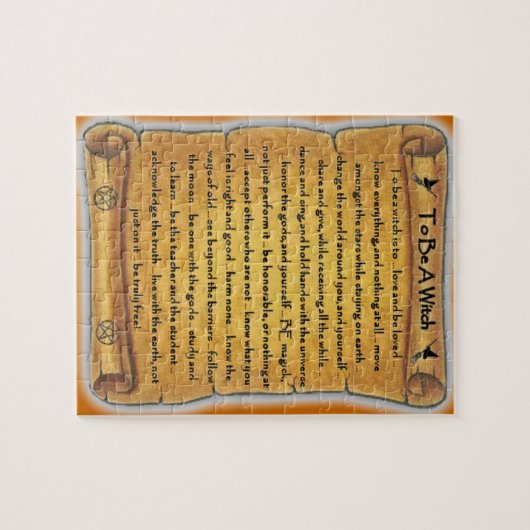 To Be A Witch
To be a witch is to ... love and be loved
know everything, and nothing at all ... move
amongst the stars while staying on earth ...
change the world around you, and yourself ...
share and give, while receiving all the while ...
dance and sing, and hold hands with the universe
honor the gods, and yourself ... BE magick,
not just perform it ... be honorable, or nothing at
all ... accept others who are not ... know what you
feel is right and good ... harm none ... know the
ways of old ... see beyond the barriers ... follow
the moon ... be one with the gods ... study and
to learn ... be the teacher and the student ...
acknowledge the truth ... live with the earth, not
just on it ... be truly free!